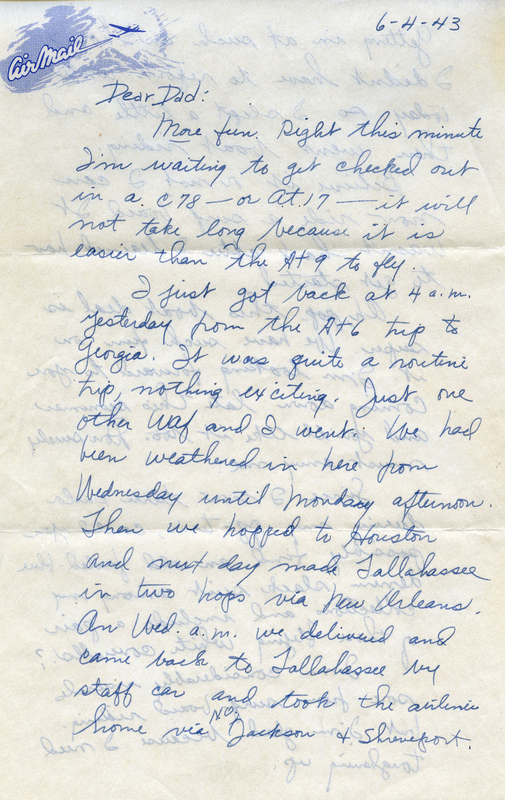 Air Mail
6-4-43
Dear Dad:
More fun. Right this minute
I'm waiting to get checked out
in a C78 — or At.17 — it will
not take long because it is
easier than the At 9 to fly.
I just got back at 4 a.m.
yesterday from the At6 trip to
Georgia. It was quite a routine
trip, nothing exciting. Just one
other Waf and I went. We had
been weathered in here from
Wednesday until Monday afternoon.
Then we hopped to Houston
and next day made Tallahassee
in two hops via New Orleans.
On Wed. a.m. we delivered and
came back to Tallahassee by
staff car and took the airline
home via NO, Jackson & Shreveport.